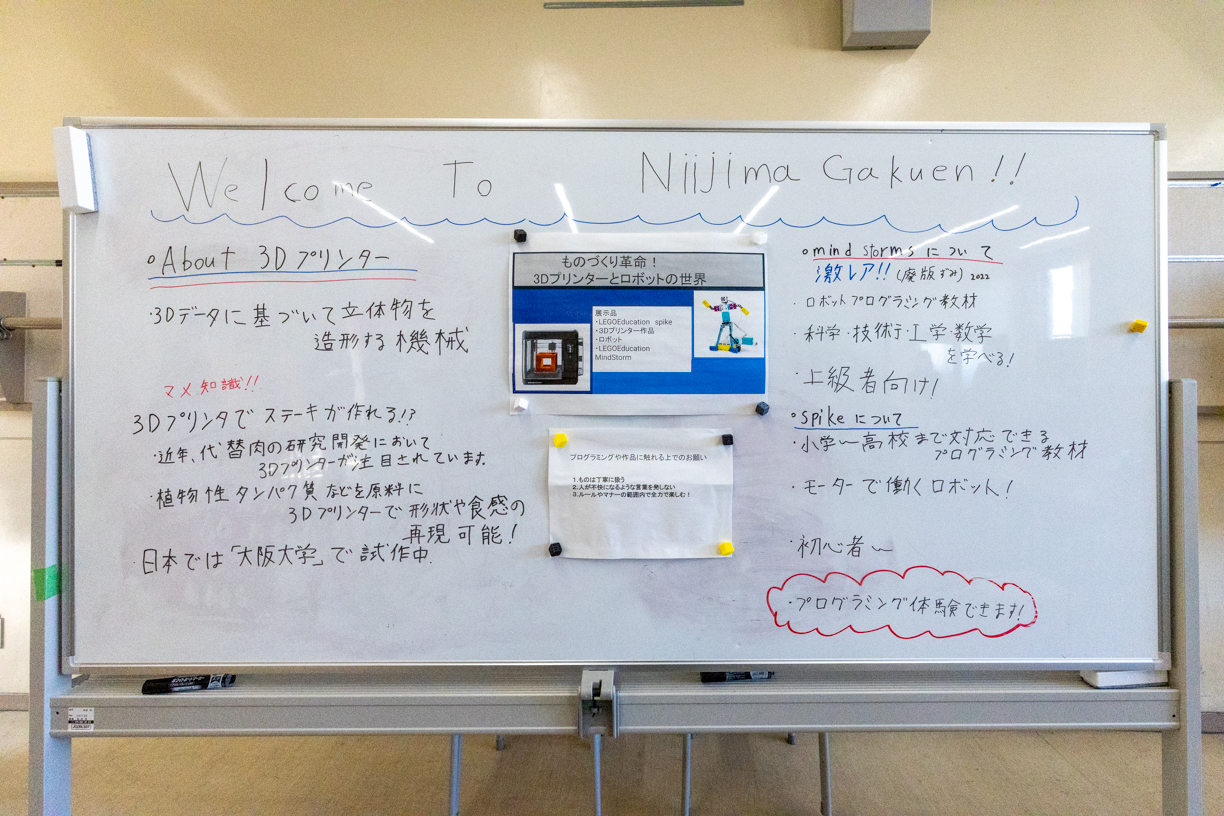 Welcome To Niijima Gakuen!!
About 3Dプリンター
・3Dデータに基づいて立体物を
造形する機械
マメ知識!!
3Dプリンタでステーキが作れる!?
・近年、代替肉の研究開発において
3Dプリンターが注目されています。
・植物性タンパク質などを原料に
3Dプリンターで形状や食感の
再現可能!
・日本では「大阪大学」で試作中.
ものづくり革命！
3Dプリンターとロボットの世界
展示品
・LEGOEducation spike
・3Dプリンター作品
・ロボット
・LEGOEducation
MindStorm
プログラミングや作品に触れる上でのお願い
1.ものは丁寧に扱う
2.人が不快になるような言葉を発しない
3.ルールやマナーの範囲内で全力で楽しむ！
mind stormsについて
激レア!!(廃版ずみ)2022
・ロボットプログラミング教材
・科学・技術・工学・数学
を学べる!
・上級者向け!
spikeについて
・小学〜高校まで対応できる
プログラミング教材
・モーターで働くロボット!
・初心者〜
・プログラミング体験できます!